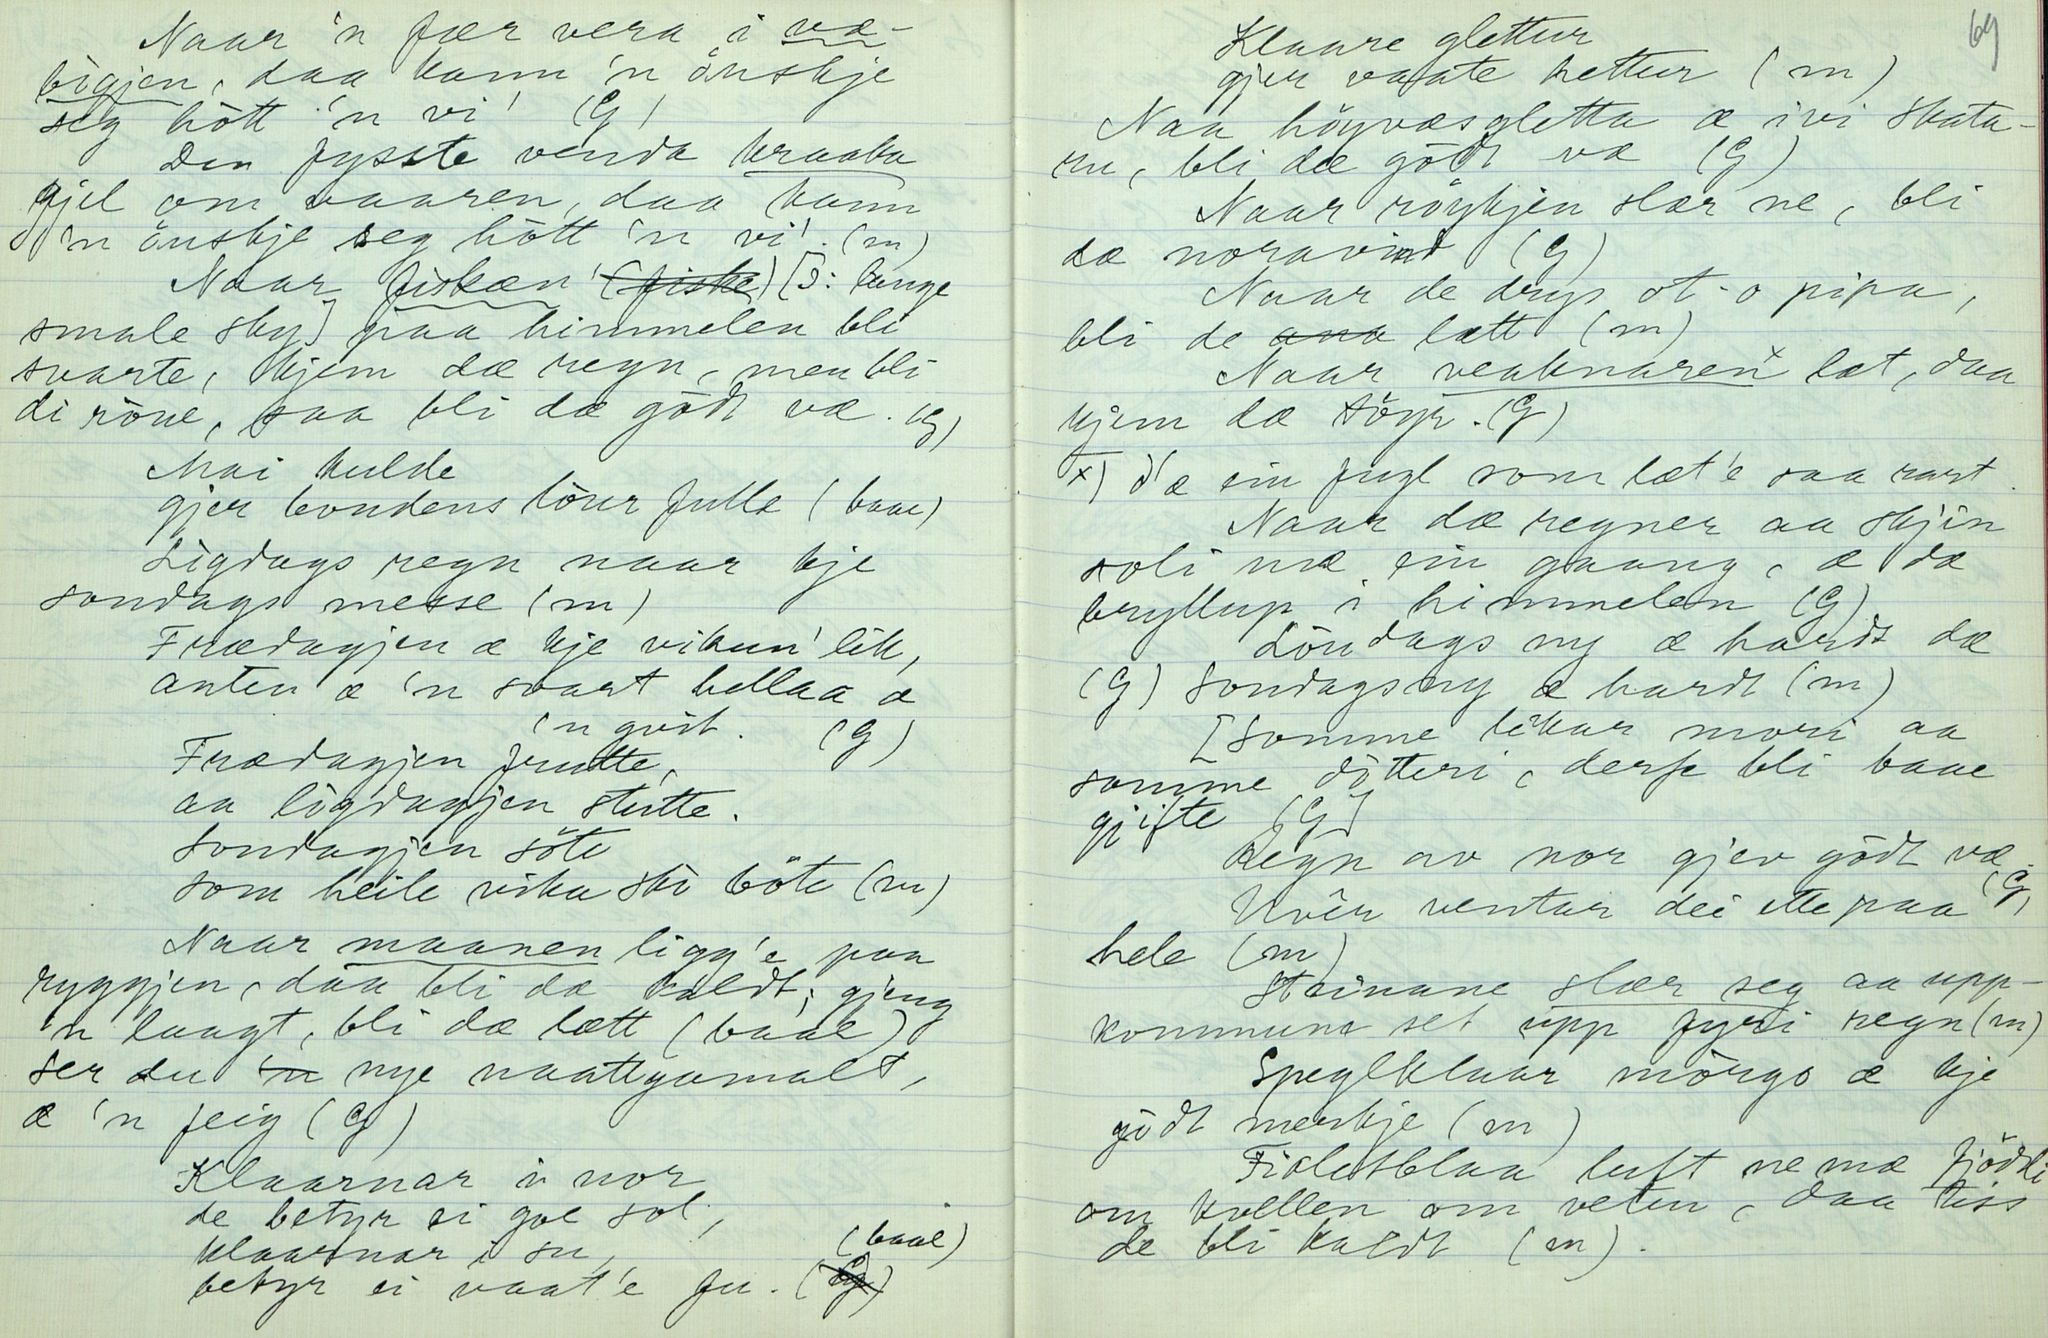 Naar 'n fær vera i væ-
bigjen, daa kann 'n önskje
seg hött 'n vi' (G)
Den fysste venda kraaka
gjel om vaaren, daa kann
'n önskje seg hött 'n vi'. (m)
Naar fiskan' (fiske) [ɔ: lange
smale sky] paa himmelen bli
svarte, kjem dæ regn, men bli
di röue, saa bli dæ gödt væ. (G)
Mai kulde
gjer bondens löur fulle (baae)
Ligdags regn naar kje
sondags messe (m)
Frædagjen æ kje vikun' lik,
anten æ 'n svart hellaa æ
'n gvit. (G)
Frædagjen frutte,
aa ligdagjen stutte.
Sondagjen söte
som heile vika ski böte (m)
Naar maanen ligg'e paa
ryggjen, daa bli dæ kaldt; gjeng
'n laagt, bli dæ lætt (baae)
Ser du 'n nye naattgamalt,
æ 'n feig (G)
Klaarnar i nor
de betyr ei goe sol,
klaarnar i su, (baae)
betyr ei vaat'e fu. (G)
69
Klaare glettur
gjer vaate hettur (m)
Naa höyvæsgletta æ ivi Skata-
ru, bli dæ gödt væ (G)
Naar röykjen slær ne, bli
dæ noravind (G)
Naar de dryp ot-o pipa,
bli de ana lætt (m)
Naar veaknaren x læt, daa
kjem dæ söyr. (G)
x) d'æ ein fugl som læt'e saa rart.
Naar dæ regner aa skjin
soli mæ ein gaang, æ dæ
bryllup i himmelen (G)
Löndags ny æ hardt dæ
(G) Sondagsny æ hardt (m)
[Somme likar mori aa
somme dötteri, derfe bli baae
gjifte (G)]
Regn av nor gjev gödt væ. (G)
Uvêr ventar dei ette paa
hele (m)
Steinane slær seg aa upp-
kommune set upp fyri regn (m)
Speglklaar mörgo æ kje
gödt merkje (m)
Fioletblaa luft ne mæ fjöddli
om kvellen om veten, daa tiss
de bli kaldt (m).